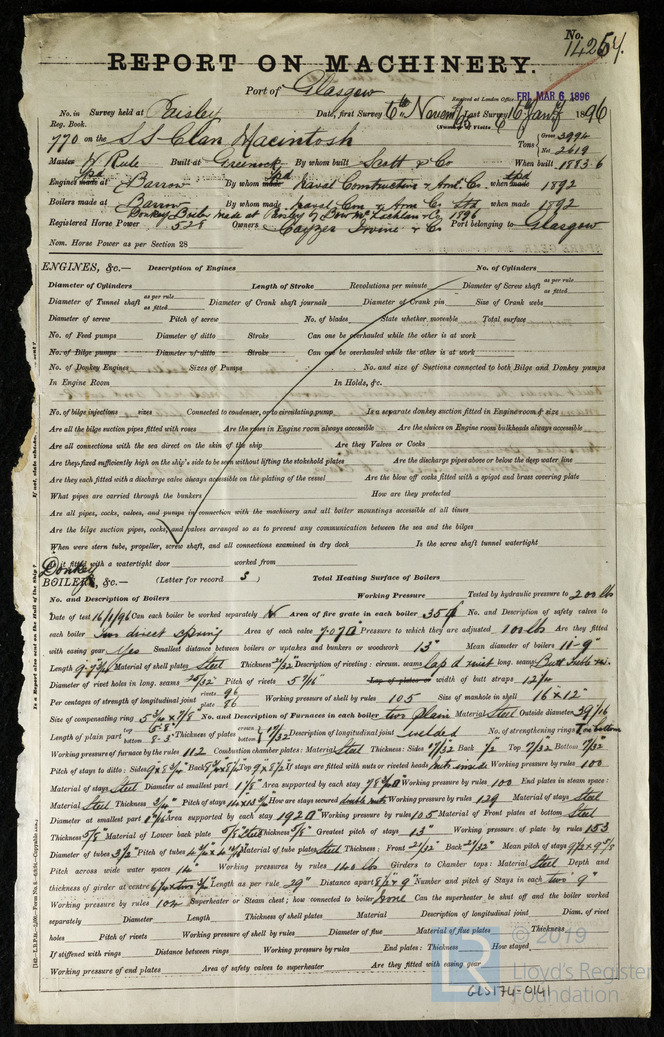 No. 14254.
REPORT ON MACHINERY.
Port of Glasgow
Received at London Office FRI. MAR 6, 1896
No. in Survey held at Paisley Date, first Survey 6th Novem Last Survey 16 Jany 1896
Reg. Book. (Number of Visits 6
770 on the S S Clan Macintosh Tons Gross 3994 Net 2619
Master W Rule Built at Greenock By whom built Scott & Co When built 1883.6
Engines made at Barrow By whom made Naval Construction & Aml. Co. when made 1892
Boilers made at Barrow By whom made Naval Con. & Arm Co Ltd when made 1892
Donkey Boiler made at Paisley by Bow McLachlan & Co 1896
Registered Horse Power 528 Owners Cayzer Irvine & Co Port belonging to Glasgow
Nom. Horse Power as per Section 28
ENGINES, &c.— Description of Engines No. of Cylinders
Diameter of Cylinders Length of Stroke Revolutions per minute Diameter of Screw shaft as per rule as fitted
Diameter of Tunnel shaft as per rule as fitted Diameter of Crank shaft journals Diameter of Crank pin Size of Crank webs
Diameter of screw Pitch of screw No. of blades State whether moveable Total surface
No. of Feed pumps Diameter of ditto Stroke Can one be overhauled while the other is at work
No. of Bilge pumps Diameter of ditto Stroke Can one be overhauled while the other is at work
No. of Donkey Engines Sizes of Pumps No. and size of Suctions connected to both Bilge and Donkey pumps
In Engine Room In Holds, &c.
No. of bilge injections sizes Connected to condenser, or to circulating pump Is a separate donkey suction fitted in Engine room & size
Are all the bilge suction pipes fitted with roses Are the roses in Engine room always accessible Are the sluices on Engine room bulkheads always accessible
Are all connections with the sea direct on the skin of the ship Are they Valves or Cocks
Are they fixed sufficiently high on the ship's side to be seen without lifting the stokehold plates Are the discharge pipes above or below the deep water line
Are they each fitted with a discharge valve always accessible on the plating of the vessel Are the blow off cocks fitted with a spigot and brass covering plate
What pipes are carried through the bunkers How are they protected
Are all pipes, cocks, valves, and pumps in connection with the machinery and all boiler mountings accessible at all times
Are the bilge suction pipes, cocks, and valves arranged so as to prevent any communication between the sea and the bilges
When were stern tube, propeller, screw shaft, and all connections examined in dry dock Is the screw shaft tunnel watertight
Is it fitted with a watertight door worked from
Donkey
BOILERS, &c.— (Letter for record S ) Total Heating Surface of Boilers
No. and Description of Boilers Working Pressure Tested by hydraulic pressure to 200 lb
Date of test 16/1/96 Can each boiler be worked separately Area of fire grate in each boiler 35 No. and Description of safety valves to
each boiler Two direct spring Area of each valve 7.07 Pressure to which they are adjusted 100 lb Are they fitted
with easing gear Yes Smallest distance between boilers or uptakes and bunkers or woodwork 13" Mean diameter of boilers 11-9"
Length 9-7 3/4 Material of shell plates Steel Thickness 21/32 Description of riveting: circum. seams lap d rivet long. seams Butt
Diameter of rivet holes in long. seams 25/32 Pitch of rivets 5 7/16 Lap of plates or width of butt straps 12
Per centages of strength of longitudinal joint rivets 96 plate 86 Working pressure of shell by rules 105 Size of manhole in shell 16 x 12"
Size of compensating ring 5 x 7/8" No. and Description of Furnaces in each boiler two plain Material Steel Outside diameter 39 7/16
Length of plain part top 6-8" bottom 8-3 Thickness of plates crown bottom 17/32 Description of longitudinal joint welded No. of strengthening rings
Working pressure of furnace by the rules 112 Combustion chamber plates: Material Steel Thickness: Sides 17/32 Back 1/2 Top 17/32 Bottom 7/32
Pitch of stays to ditto: Sides 9 x 8 Back Top 9 x 8 1/2 If stays are fitted with nuts or riveted heads nuts inside Working pressure by rules 100
Material of stays Steel Diameter at smallest part 1 1/8" Area supported by each stay Working pressure by rules 100 End plates in steam space:
Material Steel Thickness Pitch of stays How are stays secured double nuts Working pressure by rules 129 Material of stays Steel
Diameter at smallest part Area supported by each stay 192 Working pressure by rules 105 Material of Front plates at bottom Steel
Thickness 5/8" Material of Lower back plate Steel Thickness 5/8" Greatest pitch of stays 13" Working pressure of plate by rules 153
Diameter of tubes 3 1/2" Pitch of tubes Material of tube plates Steel Thickness: Front 21/32 Back 21/32 Mean pitch of stays
Pitch across wide water spaces 14" Working pressures by rules 140 lb Girders to Chamber tops: Material Steel Depth and
thickness of girder at centre Length as per rule 29" Distance apart 8 1/2 x 9" Number and pitch of Stays in each two 9"
Working pressure by rules 102 Superheater or Steam chest; how connected to boiler None Can the superheater be shut off and the boiler worked
separately Diameter Length Thickness of shell plates Material Description of longitudinal joint Diam. of rivet
holes Pitch of rivets Working pressure of shell by rules Diameter of flue Material of flue plates Thickness
If stiffened with rings Distance between rings Working pressure by rules End plates: Thickness How stayed
Working pressure of end plates Area of safety valves to superheater Are they fitted with easing gear
© 2019
Lloyd's Register
Foundation
GLS174-0141